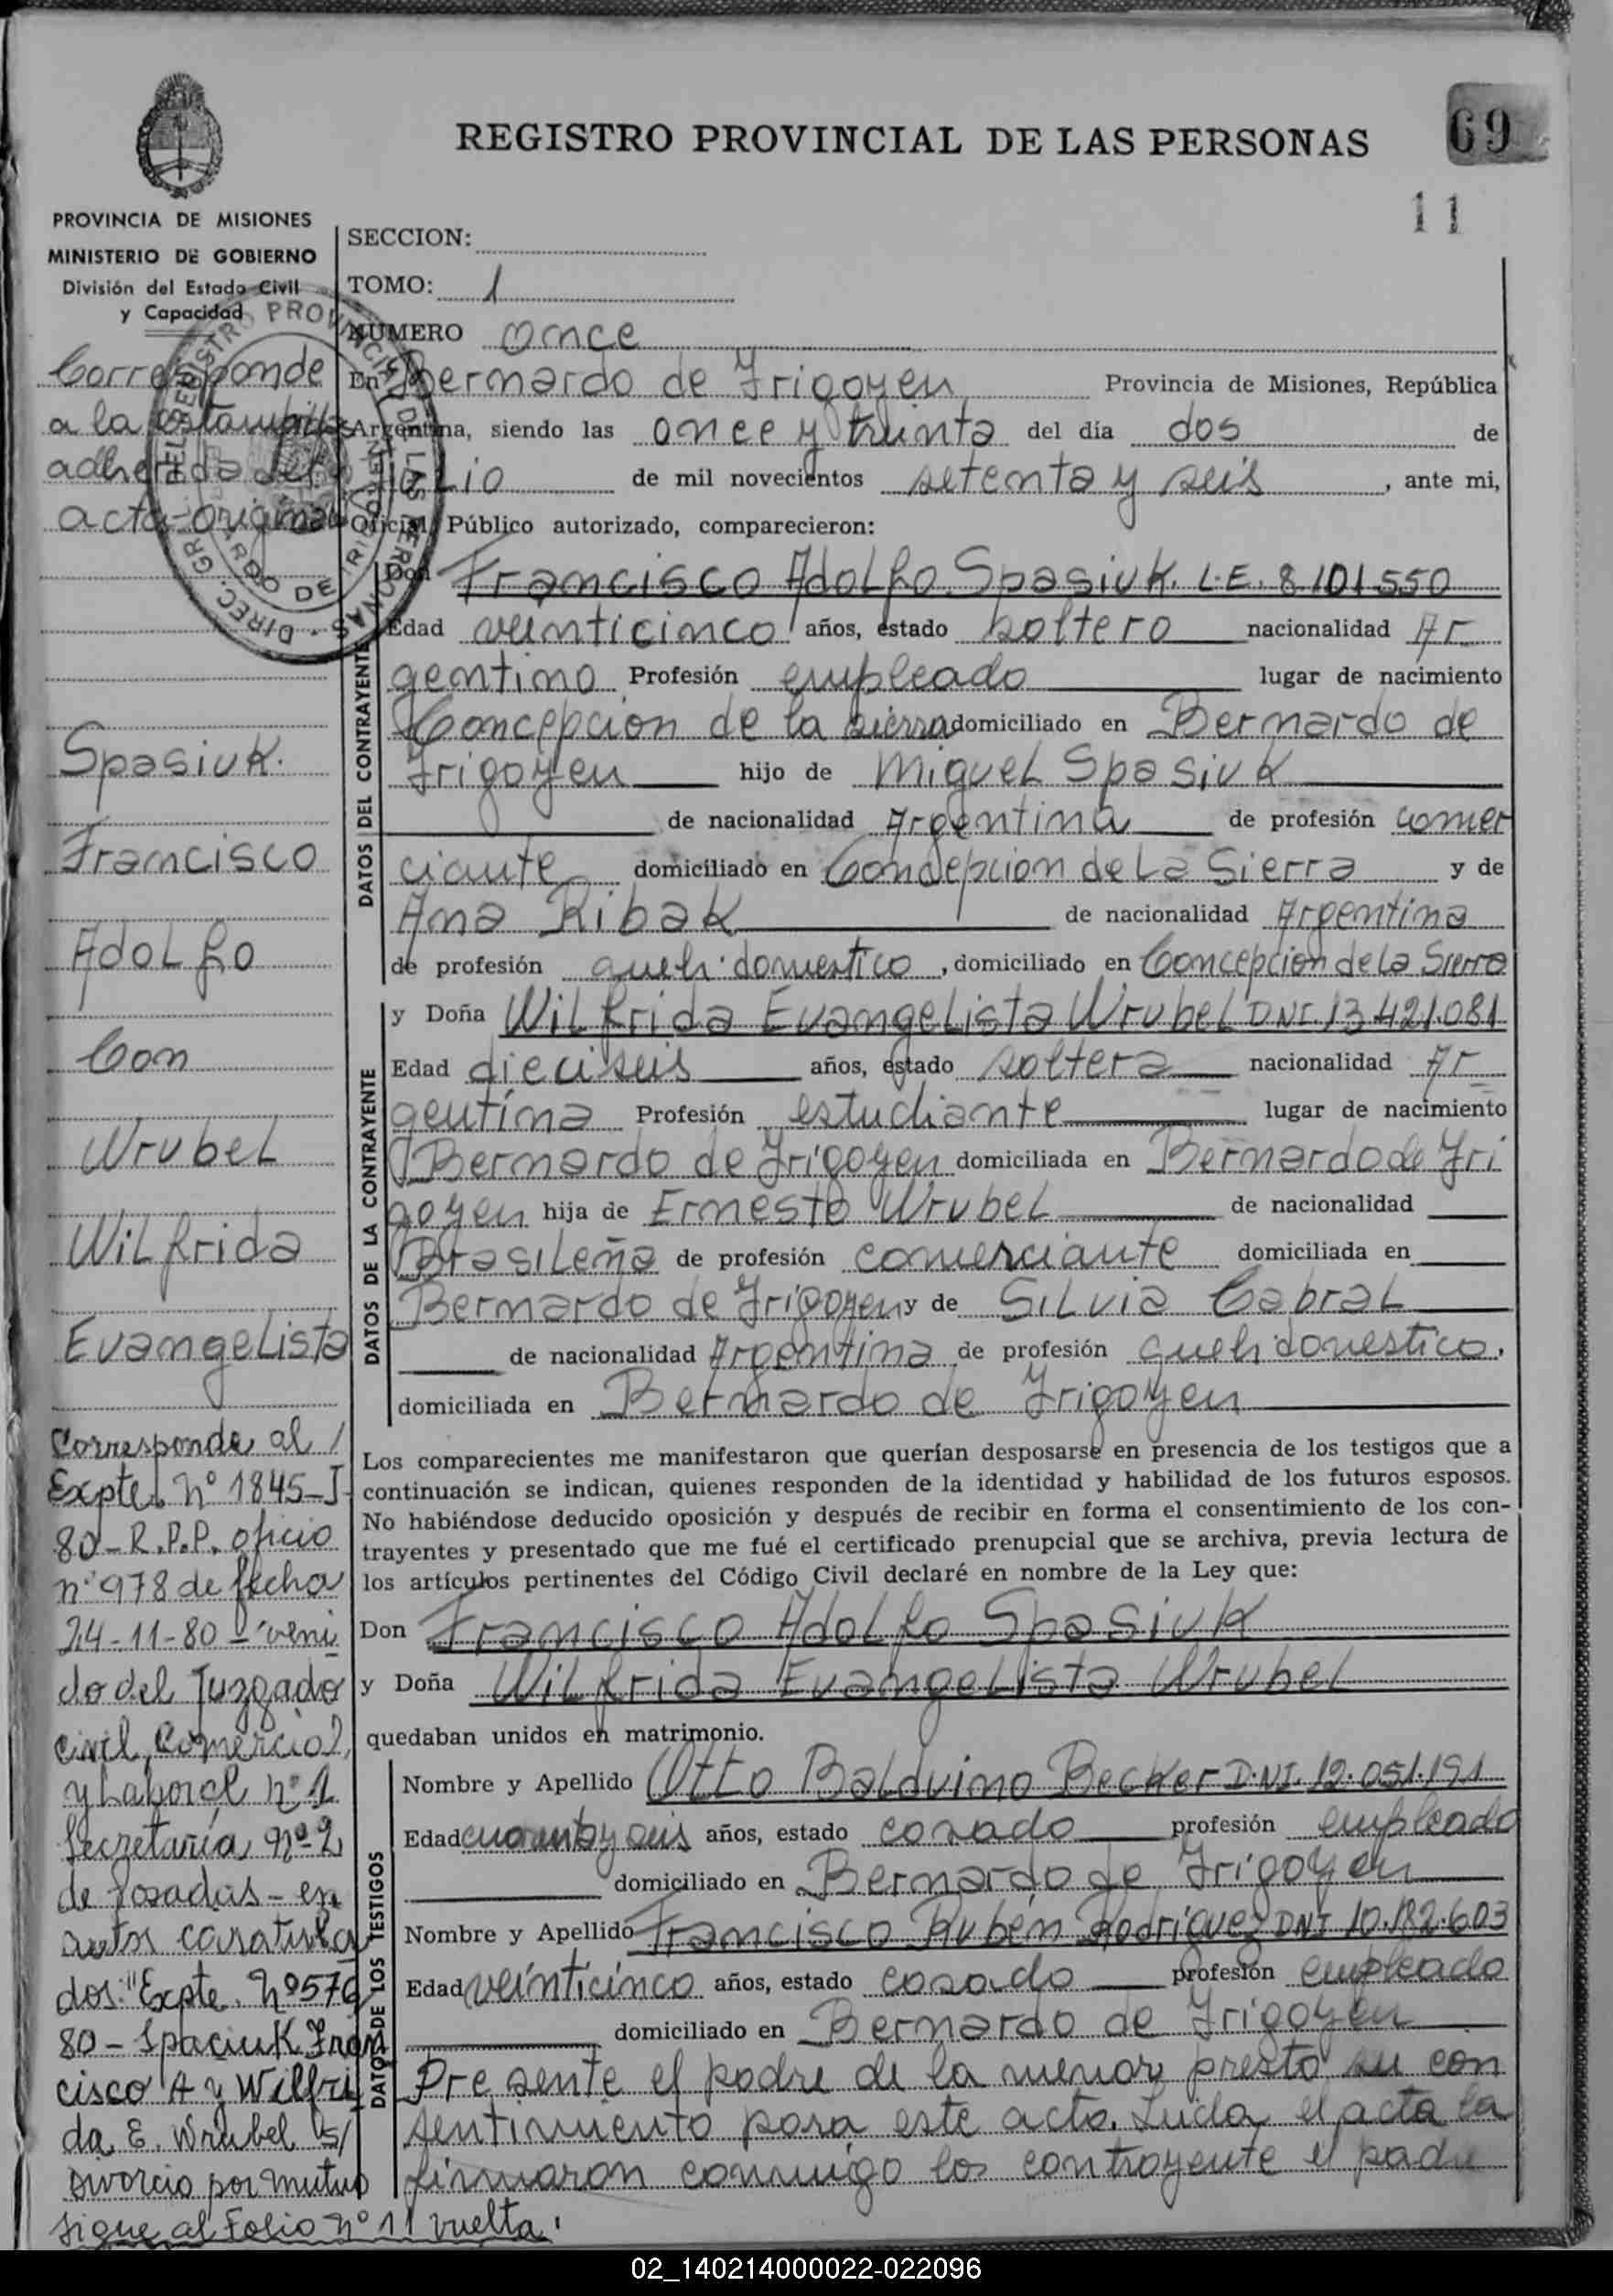 REGISTRO PROVINCIAL DE LAS PERSONAS
69
11
PROVINCIA DE MISIONES
MINISTERIO DE GOBIERNO
División del Estado Civil
y Capacidad
Corresponde
a la estampilla
adherida del
acta original
Spasiuk.
Francisco
Adolfo
Con
Wrubel
Wilfrida
Evangelista
Corresponde al
Expte. Nº 1845-I-
80-R.P.P. oficio
nº 978 de fecha
24-11-80 - veni
do del Juzgado
Civil, Comercial,
y Laboral nº 1
Secretaría nº 2
de Posadas - en
autos caratula
dos: "Expte. Nº 576
80 - Spaciuk Fran
cisco A y Wilfri
da E. Wrubel s/
Divorcio por mutuo
Sigue al Folio nº 11 vuelta.
SECCION:
TOMO: 1
NUMERO once
En Bernardo de Irigoyen Provincia de Misiones, República
Argentina, siendo las once y treinta del día dos de
Julio de mil novecientos setenta y seis, ante mi,
Oficial Público autorizado, comparecieron:
DATOS DEL CONTRAYENTE
Don Francisco Adolfo Spasiuk. L.E. 8.101.550
Edad veinticinco años, estado soltero nacionalidad Ar
gentino Profesión empleado lugar de nacimiento
Concepcion de la sierra domiciliado en Bernardo de
Irigoyen hijo de Miguel Spasiuk
de nacionalidad Argentina de profesión comer
ciante domiciliado en Concepcion de La Sierra y de
Ana Ribak de nacionalidad Argentina
de profesión queh. domestico, domiciliado en Concepcion de La Sierra
DATOS DE LA CONTRAYENTE
y Doña Wilfrida Evangelista Wrubel DNI. 13.421.081
Edad dieciseis años, estado soltera nacionalidad Ar
gentina Profesión estudiante lugar de nacimiento
Bernardo de Irigoyen domiciliada en Bernardo de Iri
goyen hija de Ernesto Wrubel de nacionalidad
Brasileña de profesión comerciante domiciliada en
Bernardo de Irigoyen y de Silvia Cabral
de nacionalidad Argentina de profesión queh. domestico.
domiciliada en Bernardo de Irigoyen
Los comparecientes me manifestaron que querían desposarse en presencia de los testigos que a
continuación se indican, quienes responden de la identidad y habilidad de los futuros esposos.
No habiéndose deducido oposición y después de recibir en forma el consentimiento de los con-
trayentes y presentado que me fué el certificado prenupcial que se archiva, previa lectura de
los artículos pertinentes del Código Civil declaré en nombre de la Ley que:
Don Francisco Adolfo Spasiuk
y Doña Wilfrida Evangelista Wrubel
quedaban unidos en matrimonio.
DATOS DE LOS TESTIGOS
Nombre y Apellido Otto Balduino Becker D.NI. 12.051.191
Edad cuarenta y seis años, estado casado profesión empleado
domiciliado en Bernardo de Irigoyen
Nombre y Apellido Francisco Rubén Rodríguez DNI 10.182.603
Edad veinticinco años, estado casado profesión empleado
domiciliado en Bernardo de Irigoyen
Presente el padre de la menor presto su con
sentimiento para este acto. Leida el acta la
firmaron conmigo los contrayente el padre
02_140214000022-022096